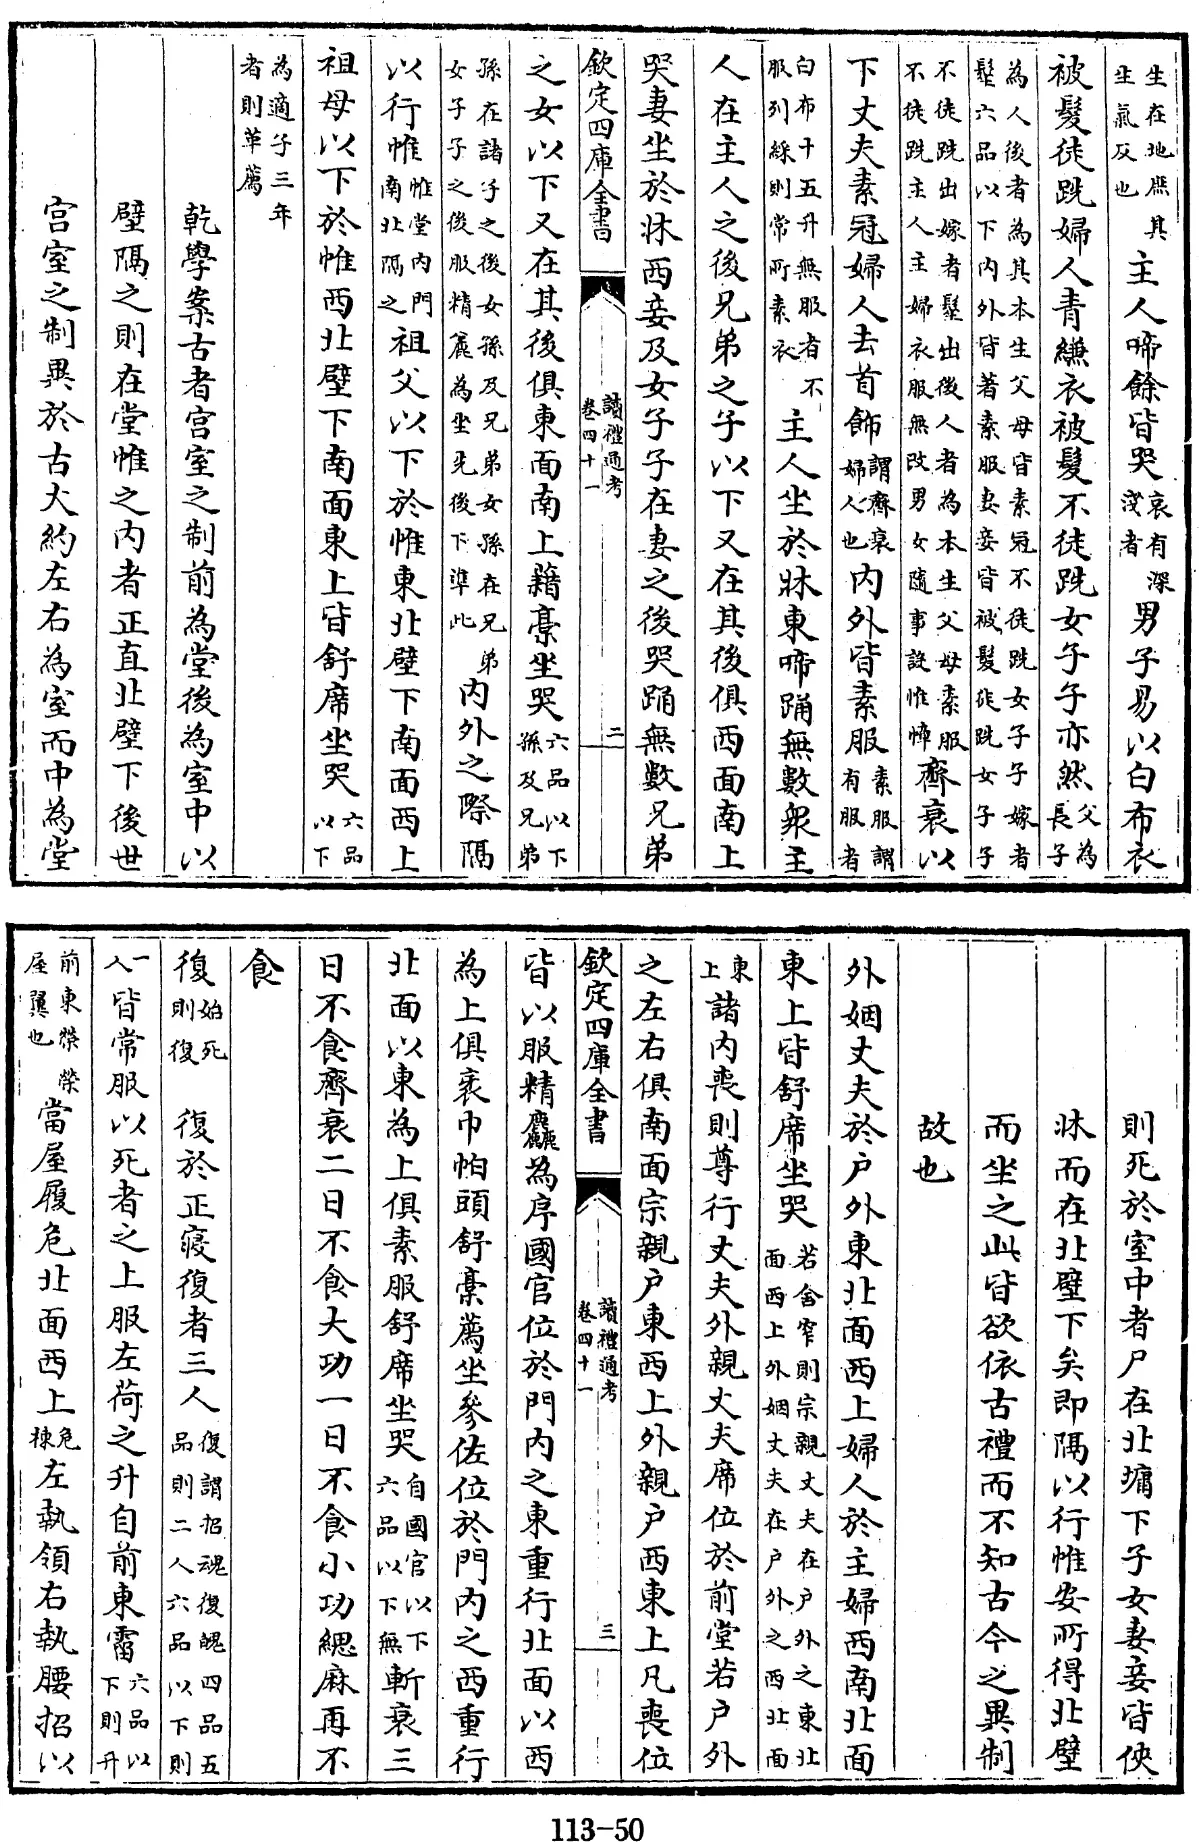 生在地庶其生氣反也主人啼餘皆哭哀有深淺者男子易以白布衣
被髮徒跣婦人青縑衣被髮不徒跣女子子亦然父為長子
為人後者為其本生父母皆素冠不徒跣女子子嫁者髽六品以下內外皆著素服妻妾皆被髮徒跣女子子
不徒跣出嫁者髽出後人者為本生父母素服不徒跣主人主婦衣服無改男女隨事設帷幛齊衰以
下丈夫素冠婦人去首飾謂齊衰婦人也內外皆素服素服謂有服者
白布十五升無服者不服列綵則常所素衣主人坐於牀東啼踊無數衆主
人在主人之後兄弟之子以下又在其後俱西面南上
哭妻坐於牀西妾及女子子在妻之後哭踊無數兄弟
欽定四庫全書 讀禮通考卷四十一 二
之女以下又在其後俱東面南上藉藁坐哭六品以下孫及兄弟
孫在諸子之後女孫及兄弟女孫在兄弟女子子之後服精麄為坐先後下準此內外之際隔
以行帷帷堂內門南北隔之祖父以下於帷東北壁下南面西上
祖母以下於帷西北壁下南面東上皆舒席坐哭六品以下
為適子三年者則草薦
乾學案古者宮室之制前為堂後為室中以
壁隔之則在堂帷之內者正直北壁下後世
宮室之制異於古大約左右為室而中為堂
則死於室中者尸在北墉下子女妻妾皆俠
牀而在北壁下矣即隔以行帷安所得北壁
而坐之此皆欲依古禮而不知古今之異制
故也
外姻丈夫於戶外東北面西上婦人於主婦西南北面
東上皆舒席坐哭若舍窄則宗親丈夫在戶外之東北面西上外姻丈夫在戶外之西北面
東上諸內喪則尊行丈夫外親丈夫席位於前堂若戶外
之左右俱南面宗親戶東西上外親戶西東上凡喪位
欽定四庫全書 讀禮通考卷四十一 三
皆以服精麤為序國官位於門內之東重行北面以西
為上俱衰巾帕頭舒藁薦坐參佐位於門內之西重行
北面以東為上俱素服舒席坐哭自國官以下六品以下無斬衰三
日不食齊衰二日不食大功一日不食小功緦麻再不
食
復始死則復 復於正寢復者三人復謂招魂復魄四品五品則二人六品以下則
一人皆常服以死者之上服左荷之升自前東霤六品以下則升
前東榮榮屋翼也當屋履危北面西上危棟左執領右執腰招以
113-50